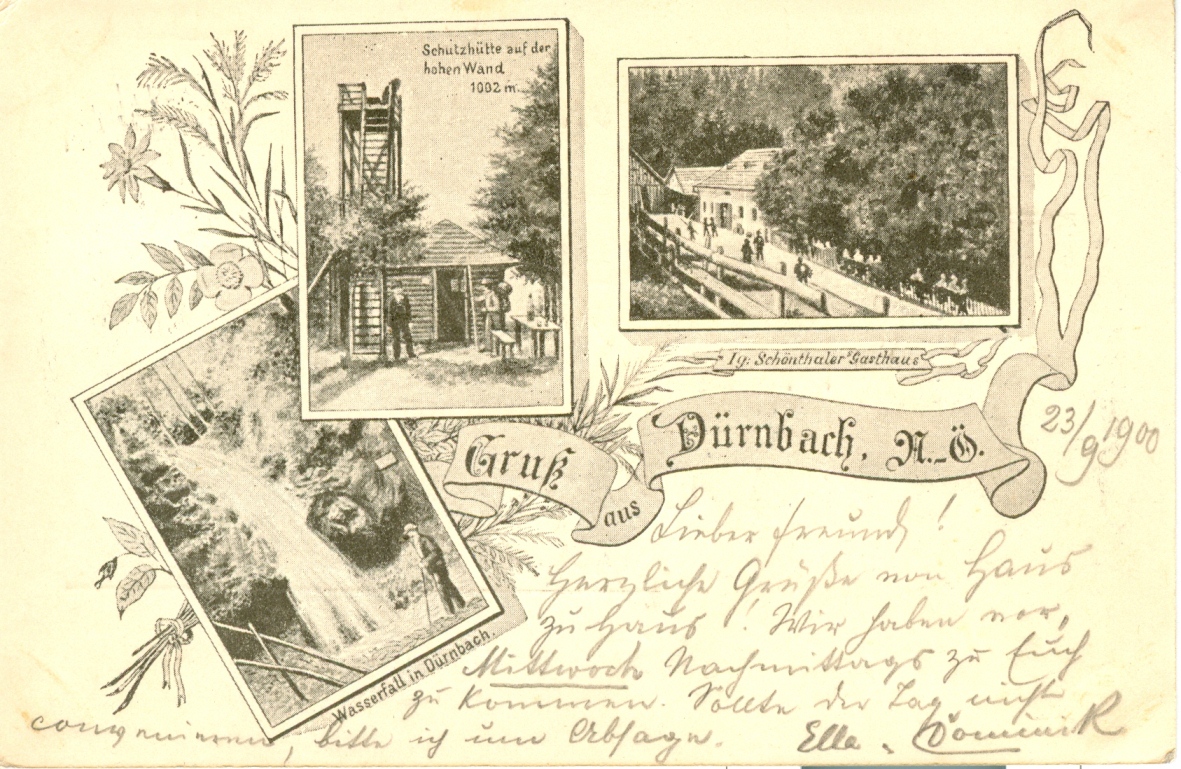 Schutzhütte auf der
hohen Wand
1002 m.
Ig. Schönthaler Gasthaus
Gruß
aus
Dürnbach, N.-Ö.
23/9 1900
Wasserfall in Dürnbach.
Lieber Freund!
Herzliche Grüße von Haus
zu Haus! Wir haben vor,
Mittwoch Nachmittags zu Euch
zu kommen. Sollte der Tag nicht
convenieren, bitte ich um Absage.
Ella, Dominik